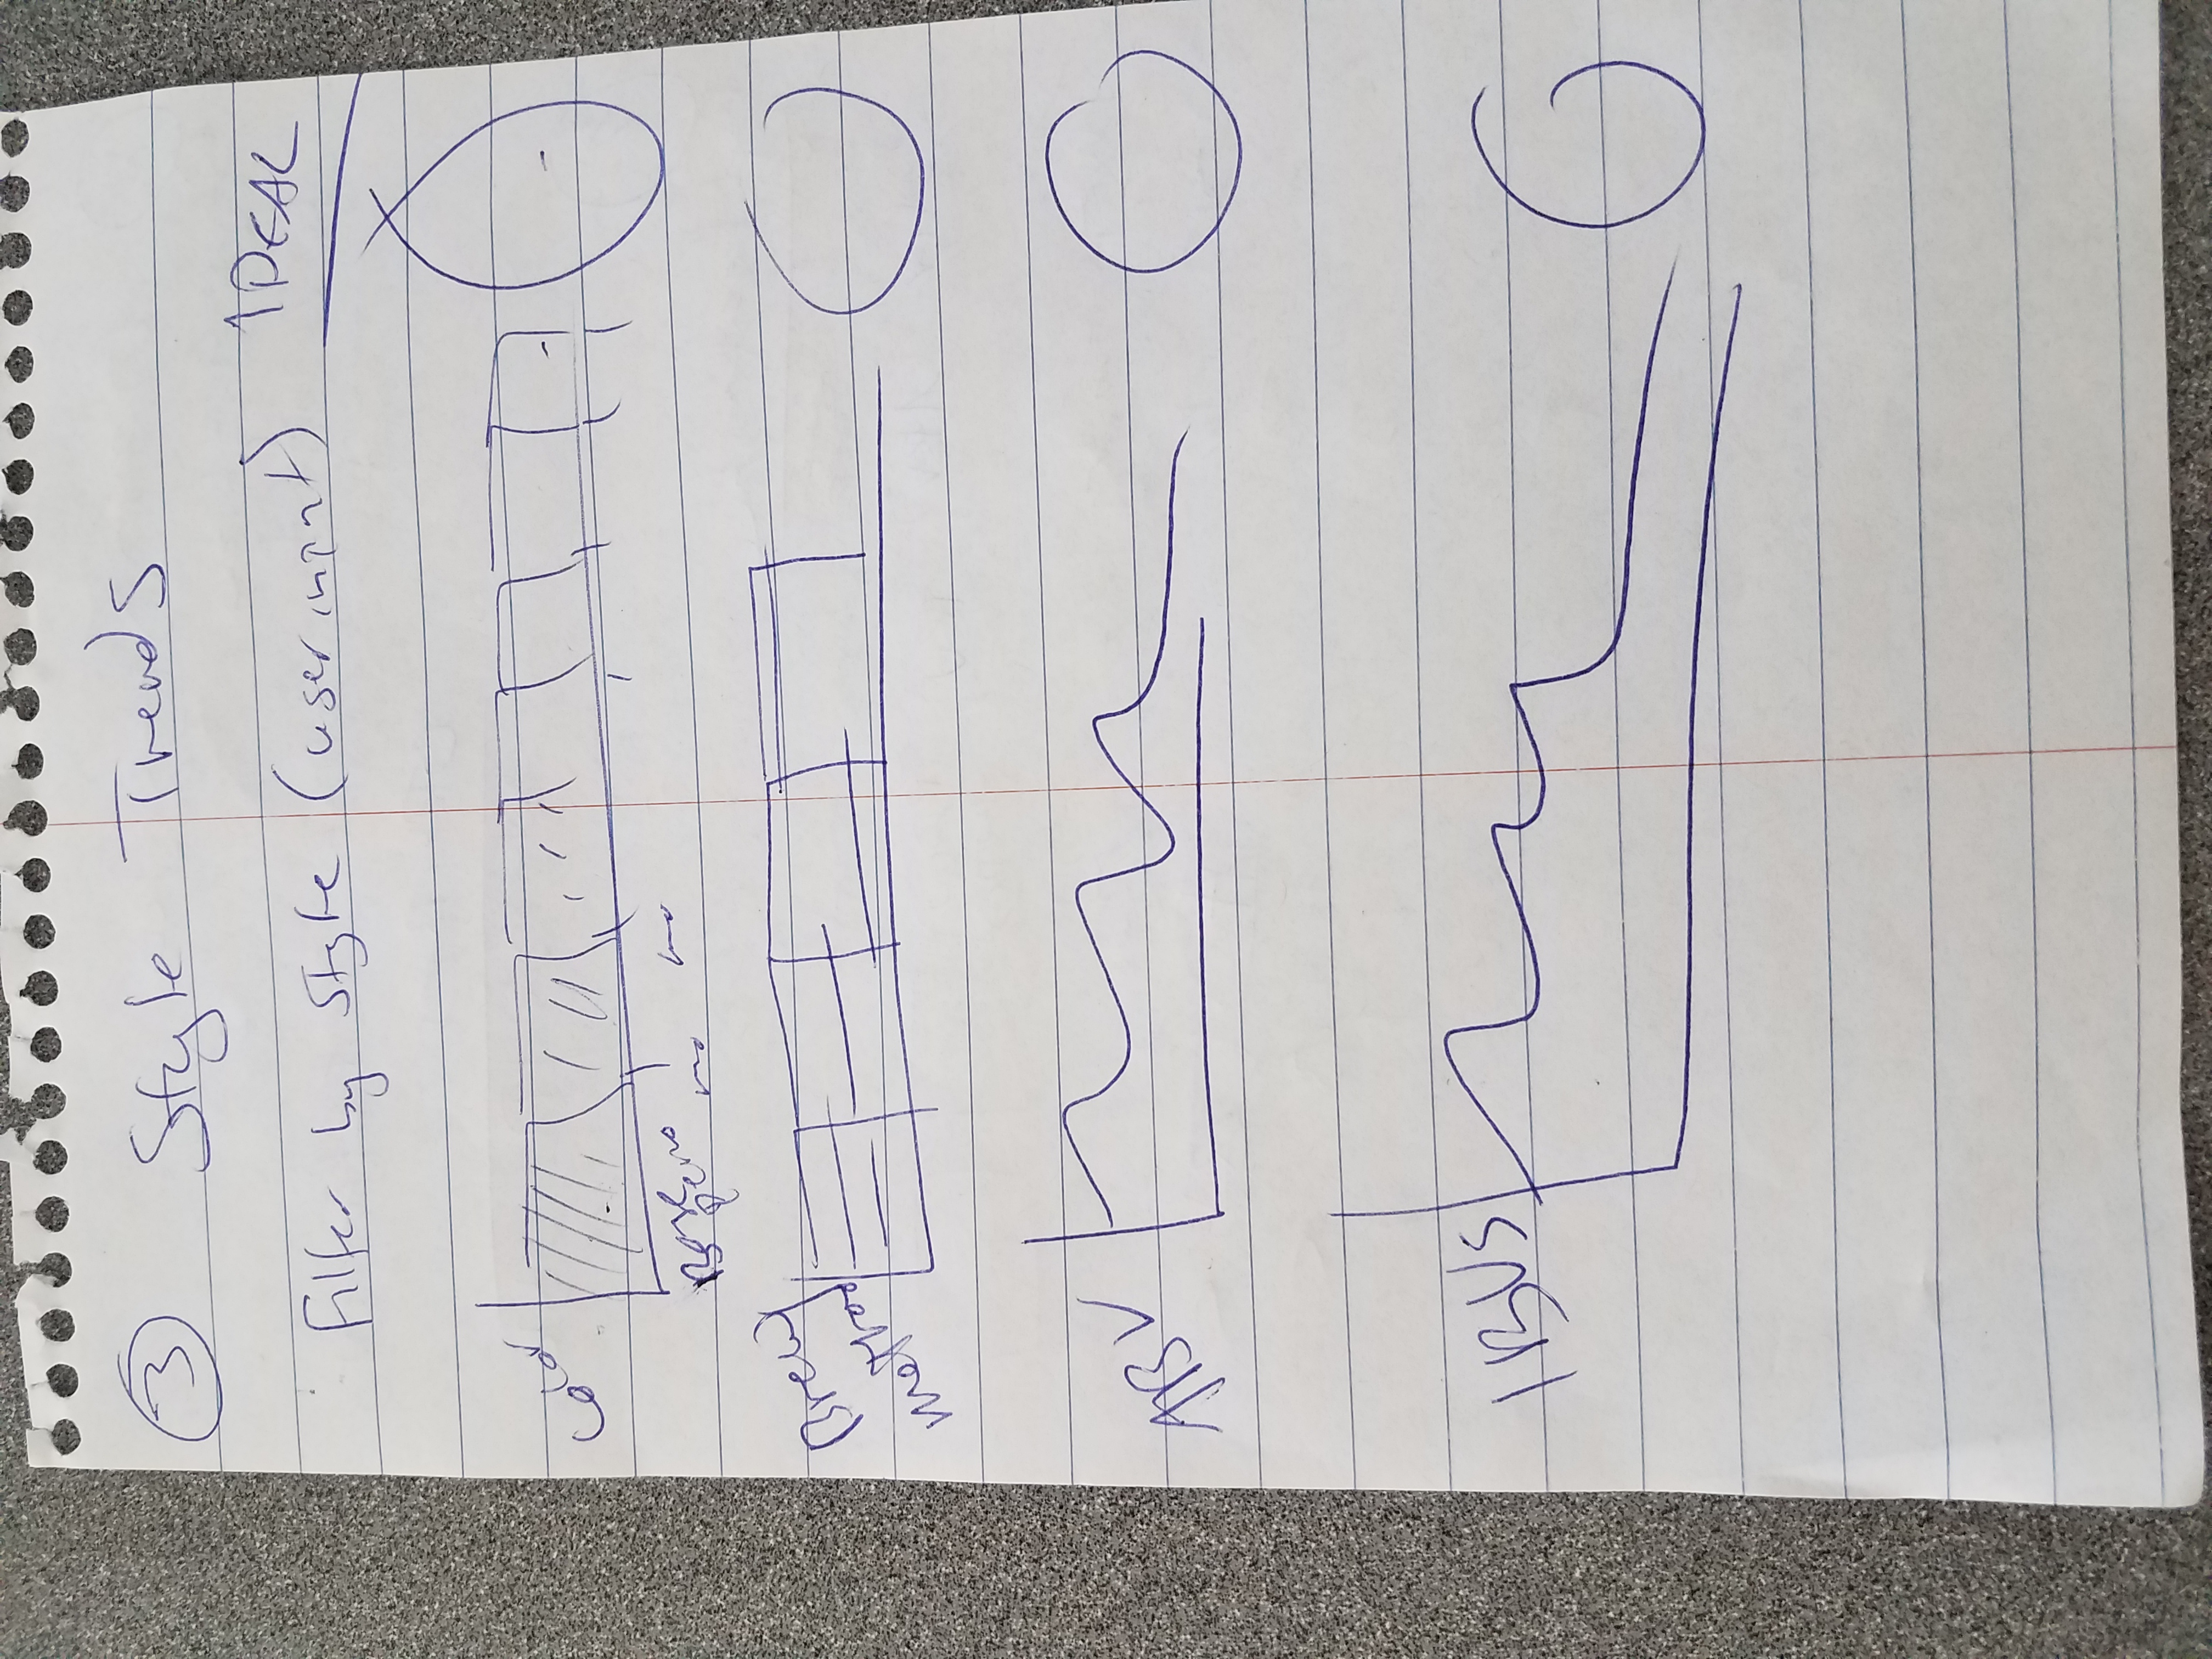 3 Style Trends
Filter by Style (user input) IDEAL
Color
Base
mo mo
Brewing
method
ABV
IBUs